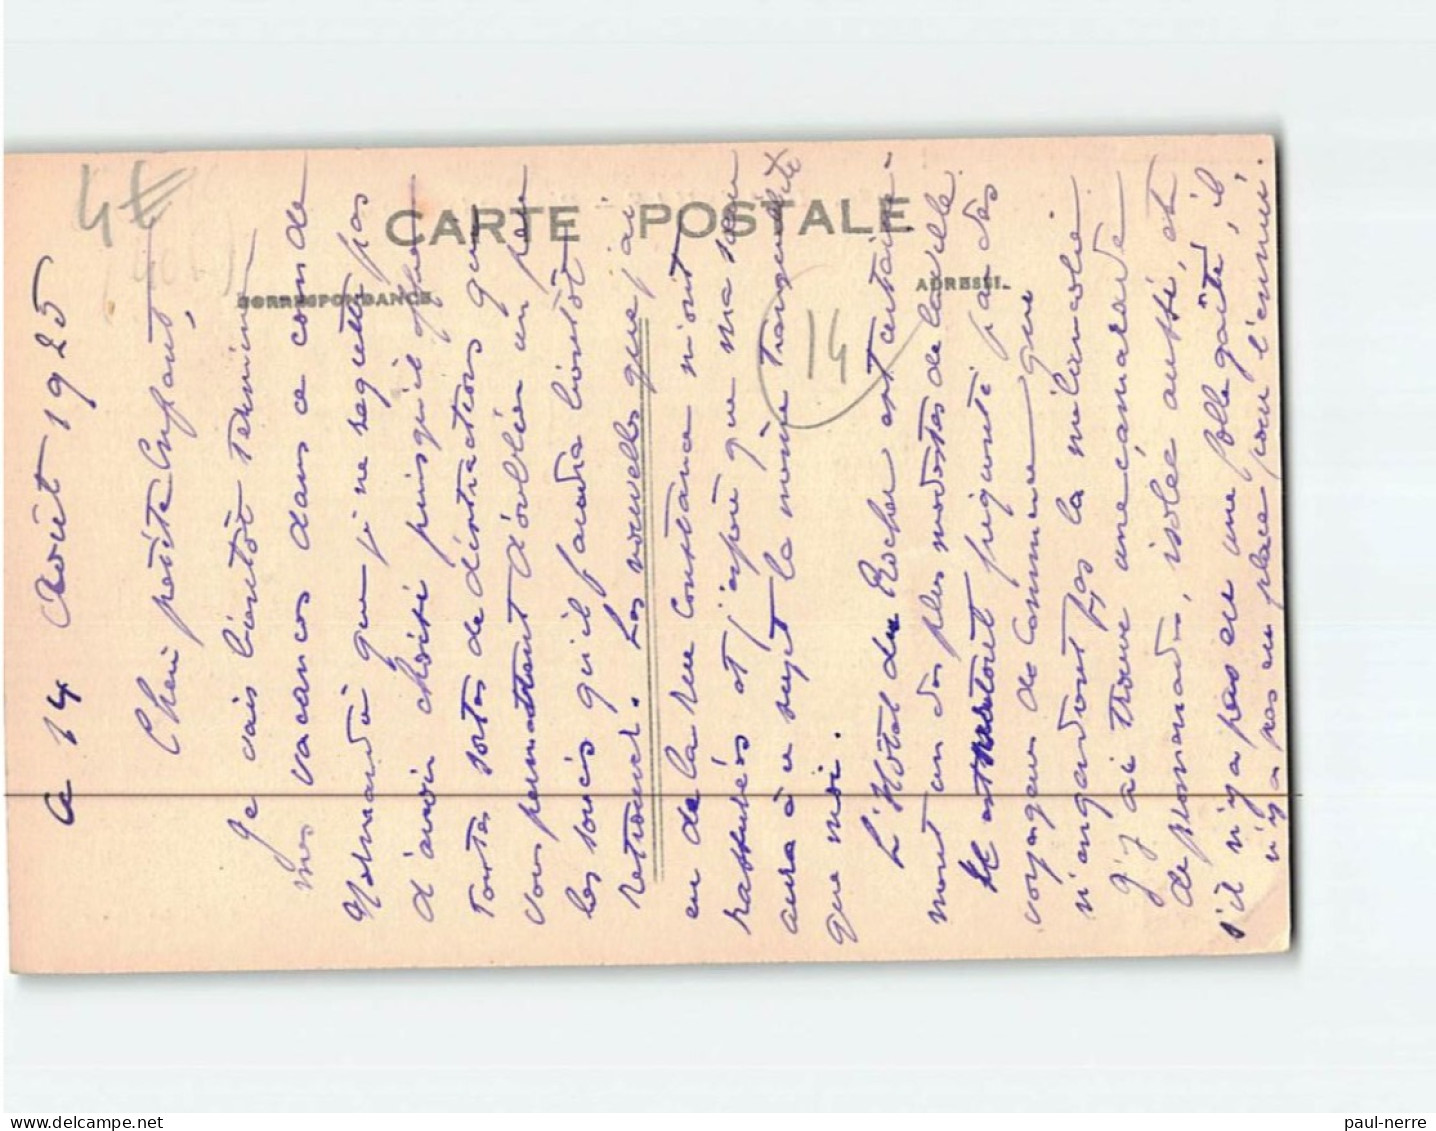 CARTE POSTALE
CORRESPONDANCE
ADRESSE
4€
14
Ce 14 Août 1925
Cheri petite Enfant,
Je vais bientôt terminer
mes vacances dans ce coin de
que je ne regrette pas
d'avoir choisi puisqu'il offre
toutes sortes de distractions qui
vous permettent d'oublier un peu
les soucis qu'il faudra bientôt
retrouver. Les nouvelles que j'ai
eu de la rue Constance m'ont
rassurés et j'espère que ma sœur
aura à ce sujet la même tranquillité
que moi.
L'Hôtel du Rocher est certaine-
ment un des plus modestes de la ville
Il est surtout fréquenté par des
voyageurs de Commerce que
n'engendrent pas la mélancolie
J'y ai trouvé une camarade
de promenades, isolée aussi, et
s'il n'y a pas eu une folle gaîté, il
n'y a pas eu place pour l'ennui.
paul-nerre